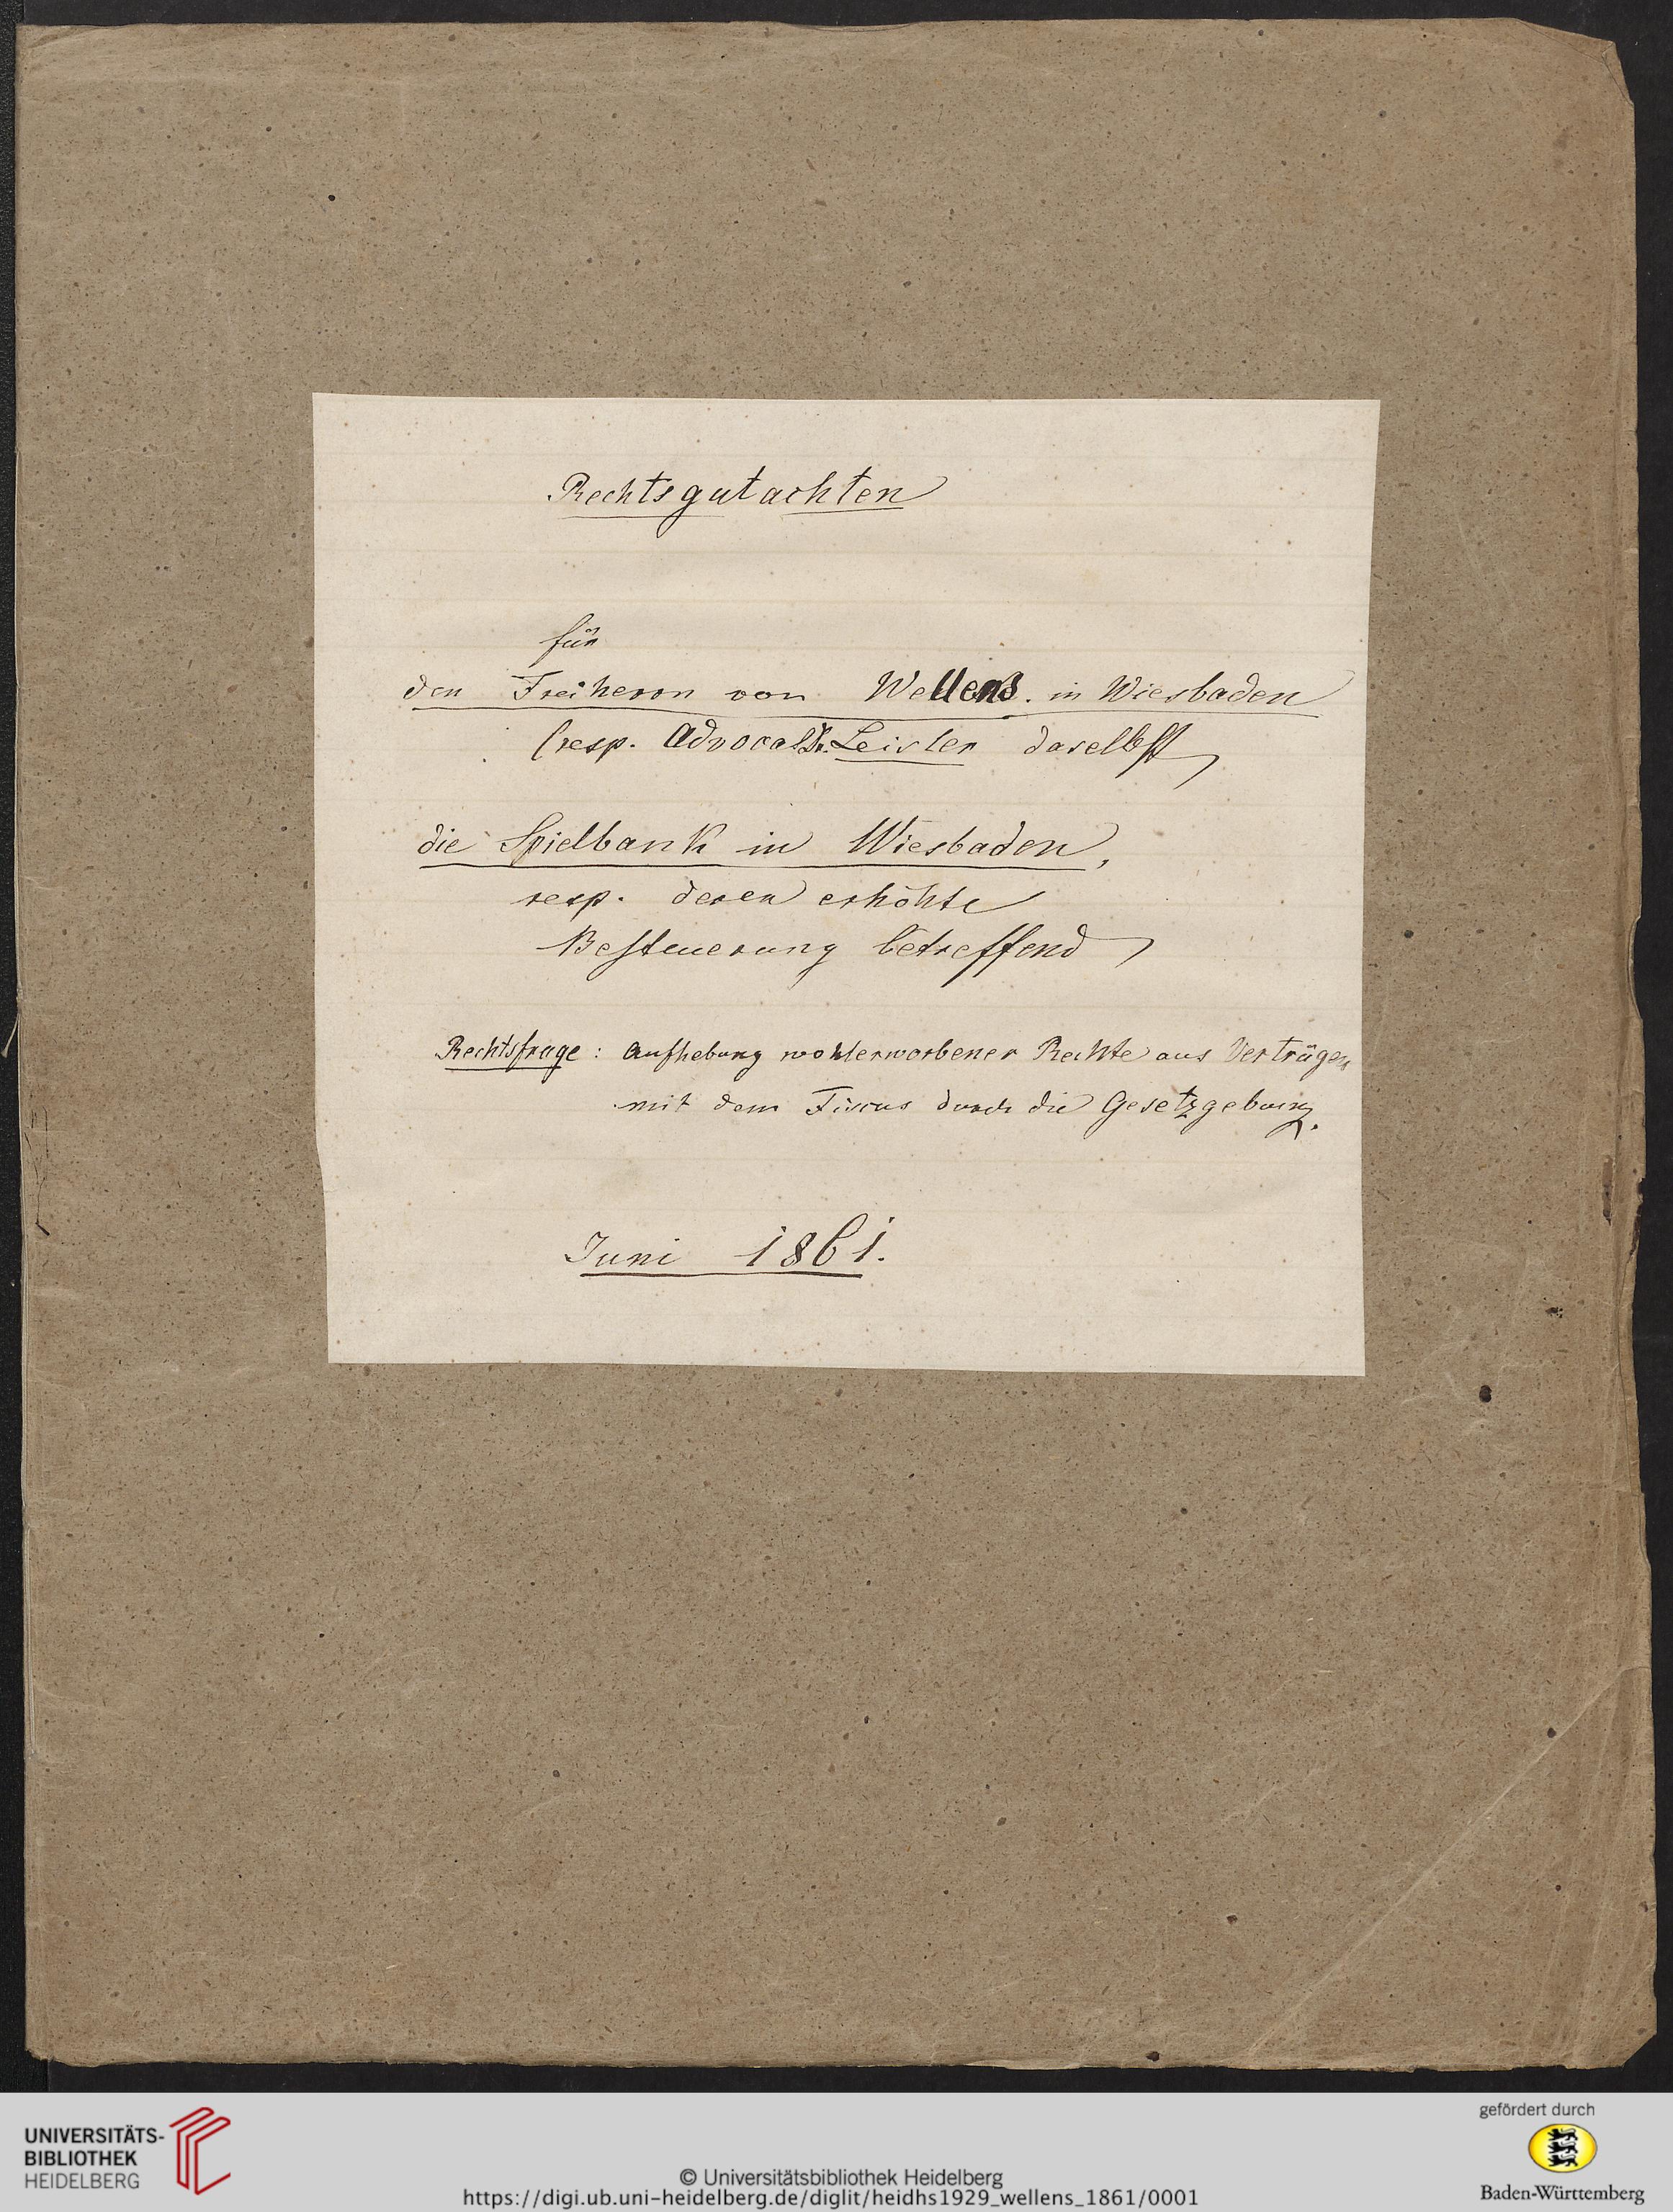 Rechtsgutachten
für
den Freiherrn von Wellens. in Wiesbaden
(resp. Advocat Dr. Leisler daselbst)
die Spielbank in Wiesbaden,
resp. deren erhöhte
Besteuerung betreffend
Rechtsfrage: Aufhebung wohlerworbener Rechte aus Verträgen
mit dem Fiscus durch die Gesetzgebung.
Juni 1861.
UNIVERSITÄTS-
BIBLIOTHEK
HEIDELBERG
© Universitätsbibliothek Heidelberg
https://digi.ub.uni-heidelberg.de/diglit/heidhs1929_wellens_1861/0001
gefördert durch
Baden-Württemberg